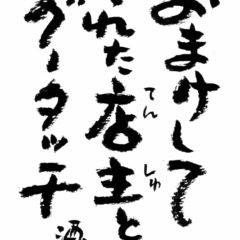 おまけして
くれた店主と
てんしゅ
グータッチ
酒